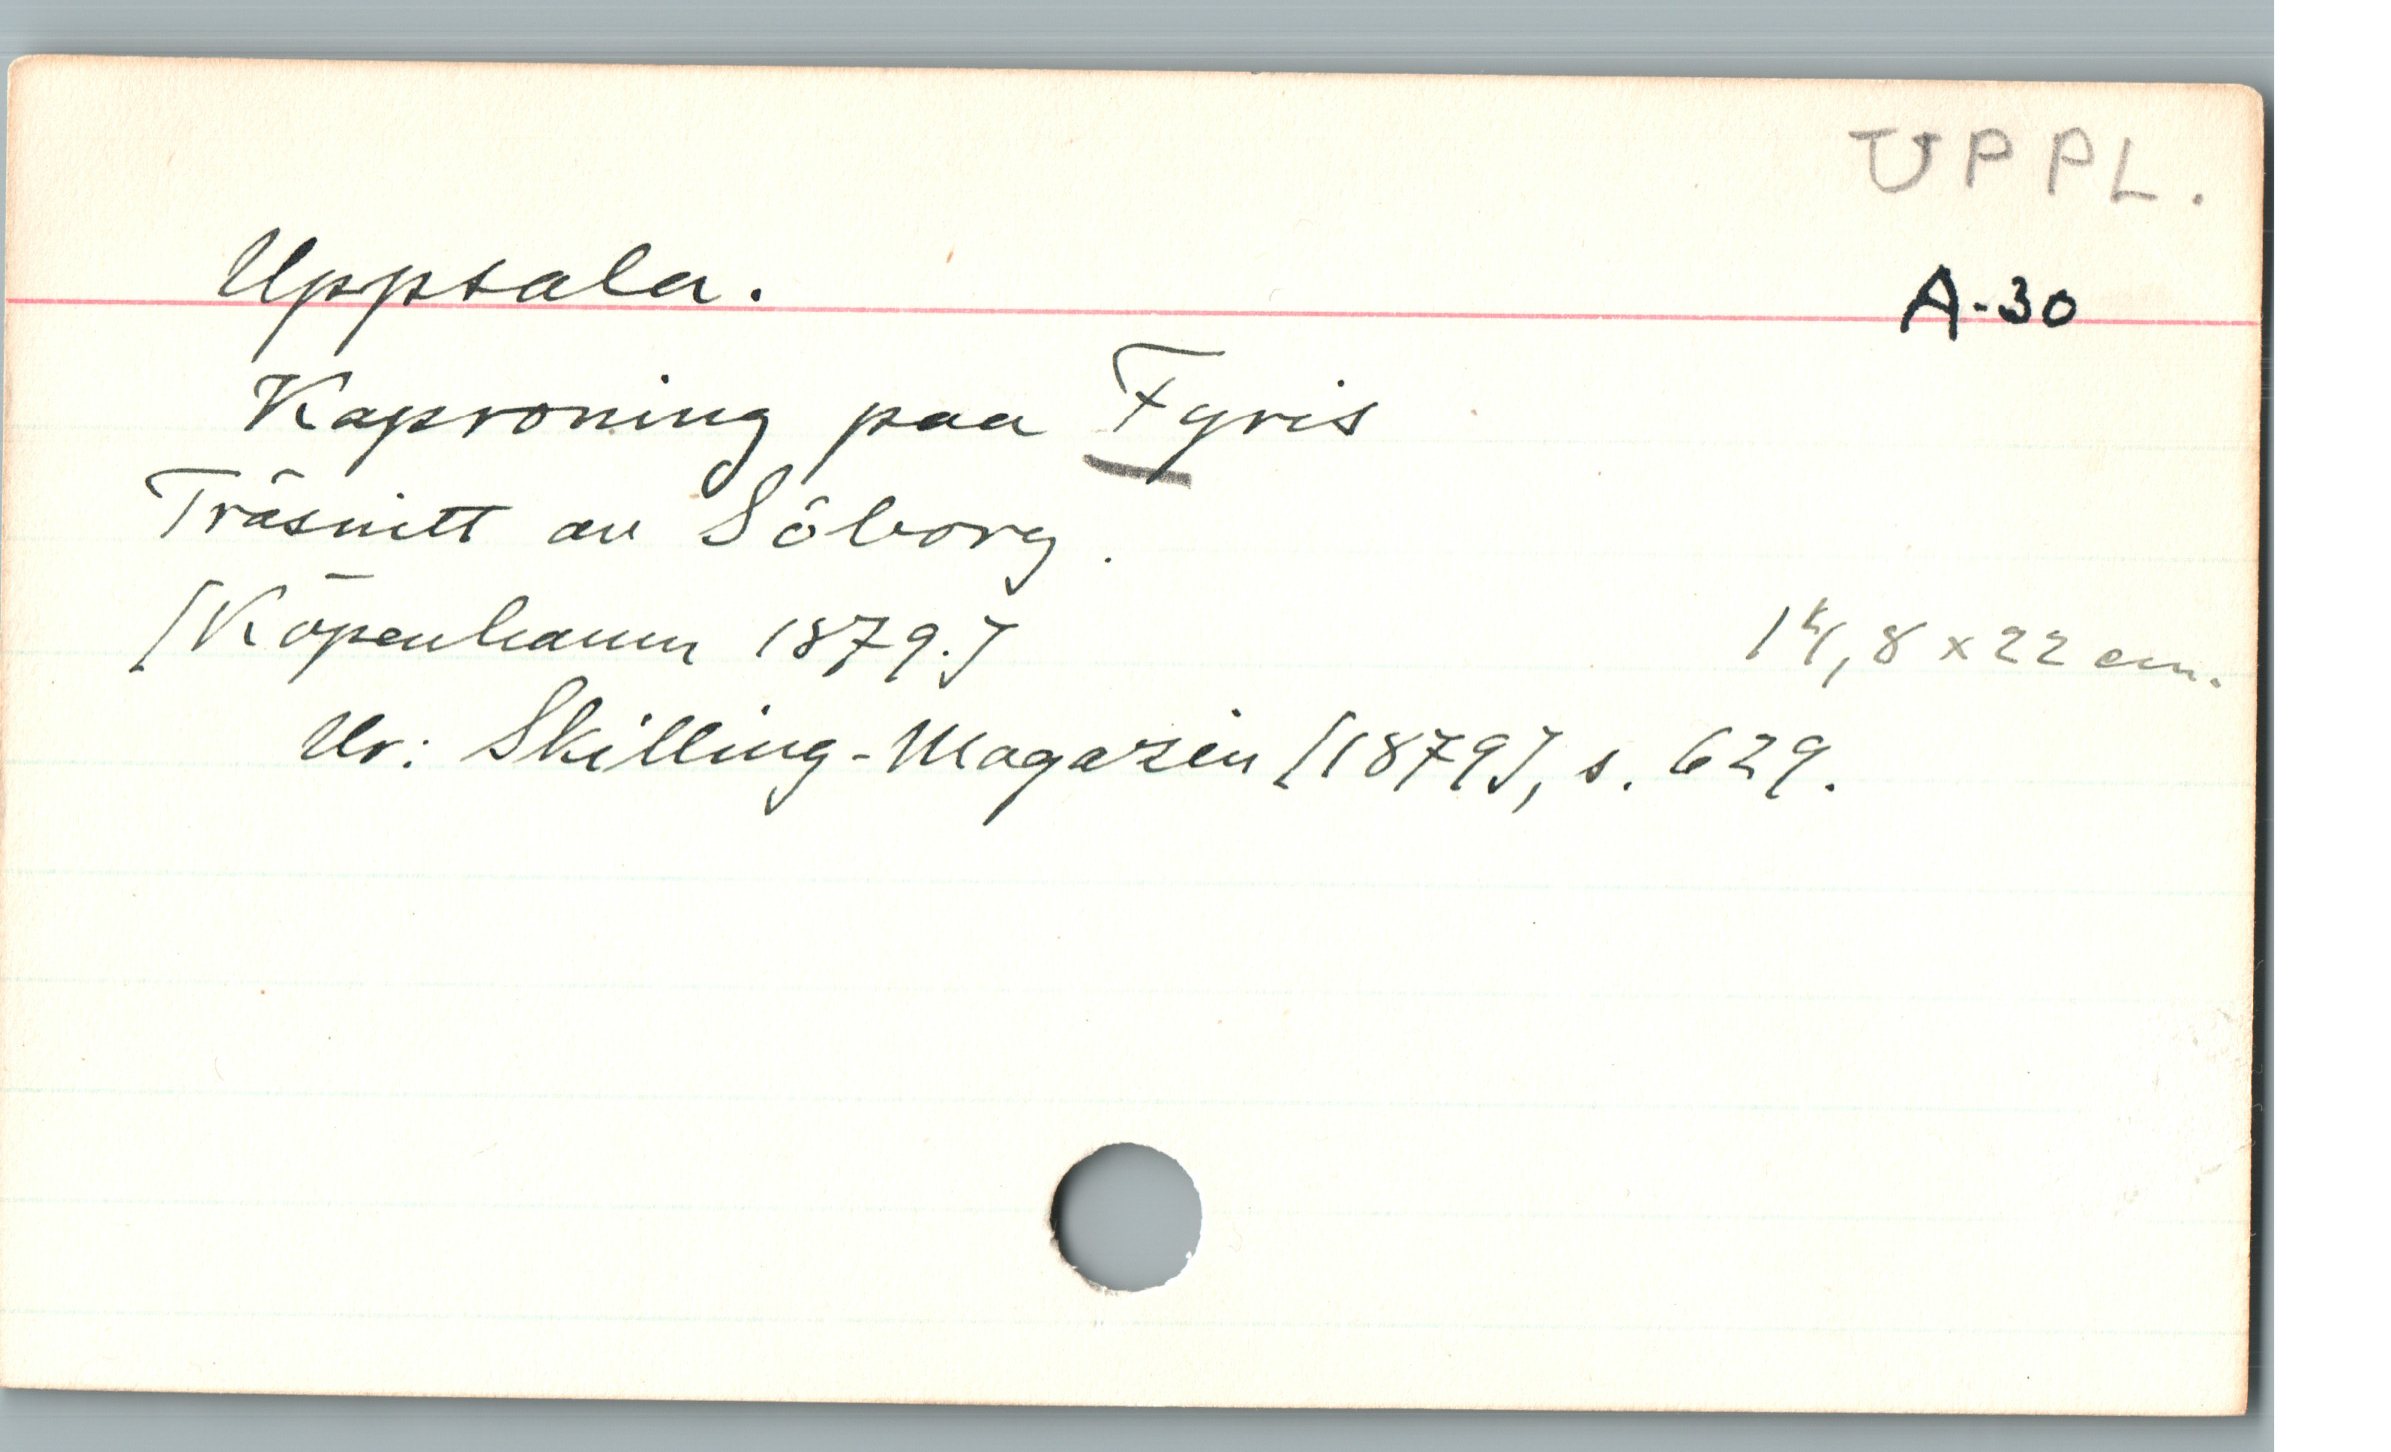 UPPL.
Uppsala.
A-30
Kaproning paa Fyris
Träsnitt av Söborg.
[Köpenhamn 1879.]
14,8 x 22 cm.
Ur: Skilling-Magazin [1879], s. 629.